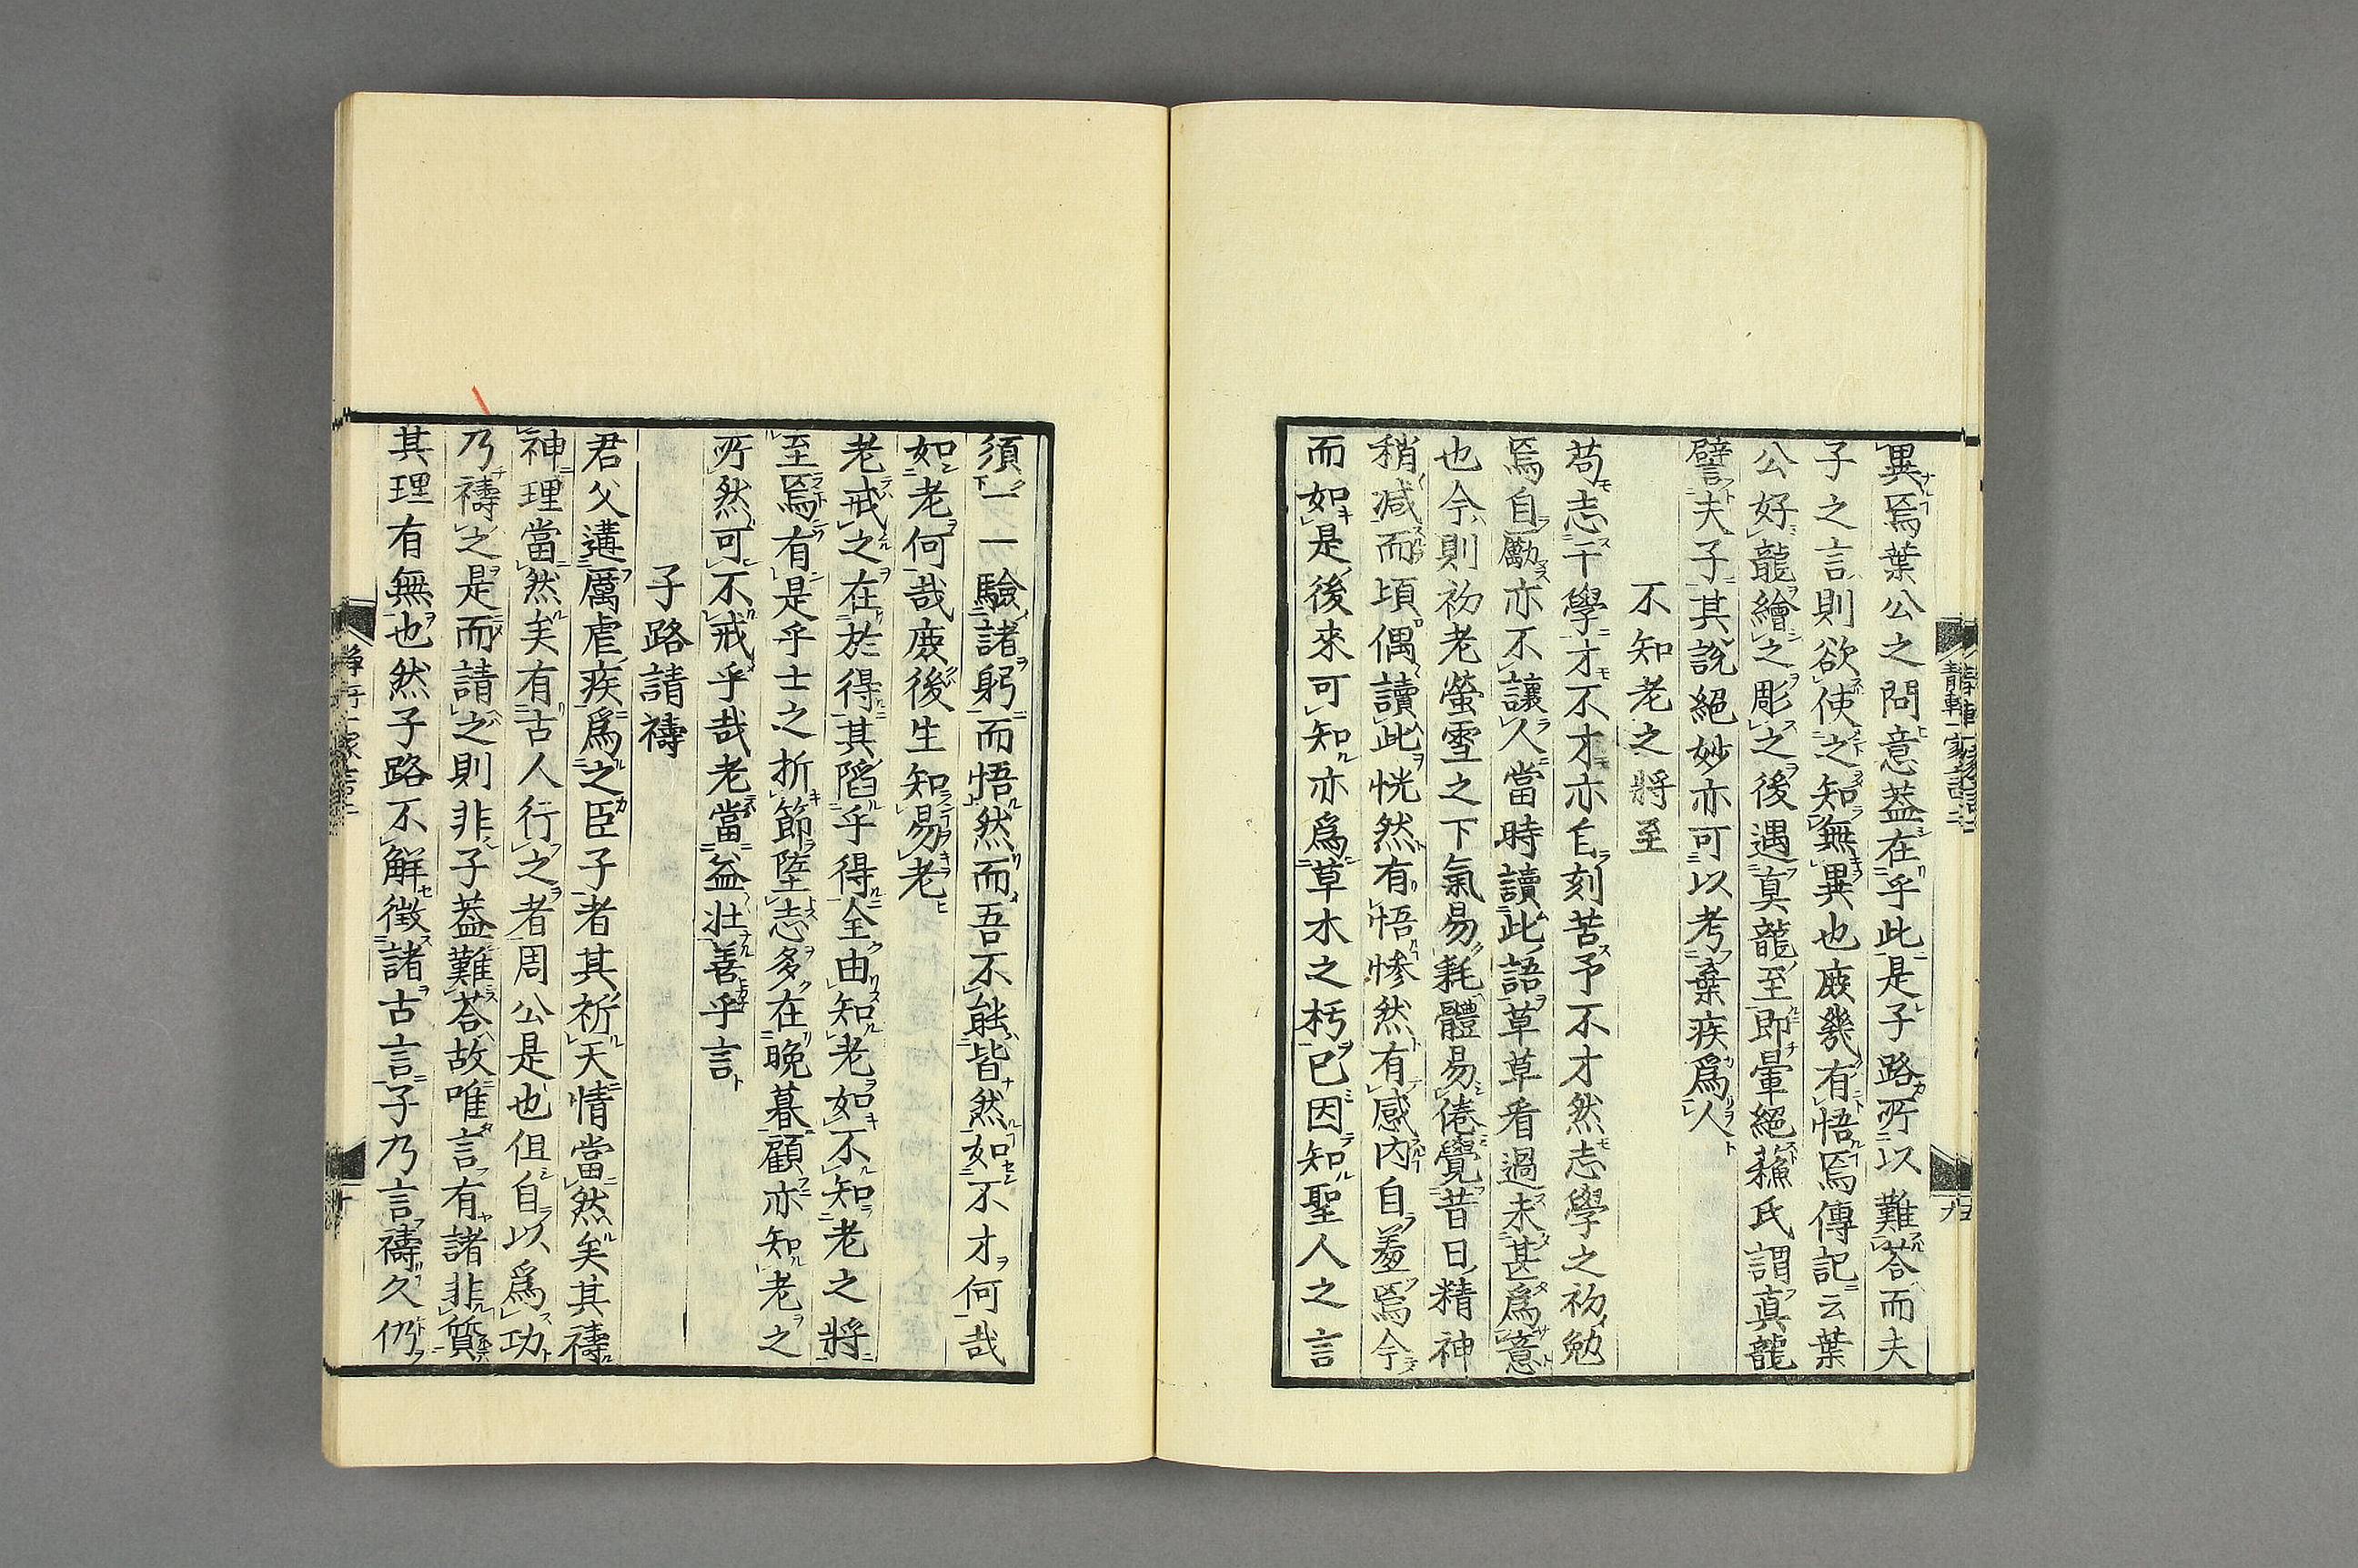 異焉葉公之問意蓋在乎此是子路所以難荅而夫
子之言則欲使之知無異也庶幾有悟焉傳記云葉
公好龍繪之彫之後遇真龍至即暈絕蘓氏謂真龍
譬夫子其說絕妙亦可以考棄疾爲人
不知老之將至
苟志于學才不才亦自刻苦予不才然志學之初勉
焉自勵亦不讓人當時讀此語草草看過未甚爲意
也今則初老螢雪之下氣易耗體易倦覺昔日精神
稍減而頃偶讀此恍然有悟慘然有感內自羞焉今
而如是後來可知亦爲草木之朽已因知聖人之言
須一一驗諸躬而悟然而吾不能皆然如不才何哉
如老何哉庶後生知易老
老戒之在於得其陷乎得全由知老如不知老之將
至焉有是乎士之折節陸志多在晚暮顧亦知老之
所然可不戒乎哉老當益壯善乎言
子路請禱
君父遘厲虐疾爲之臣子者其祈天情當然矣其禱
神理當然矣有古人行之者周公是也但自以爲功
乃禱之是而請之則非子蓋難荅故唯言有諸非質
其理有無也然子路不解徵諸古言子乃言禱久仍